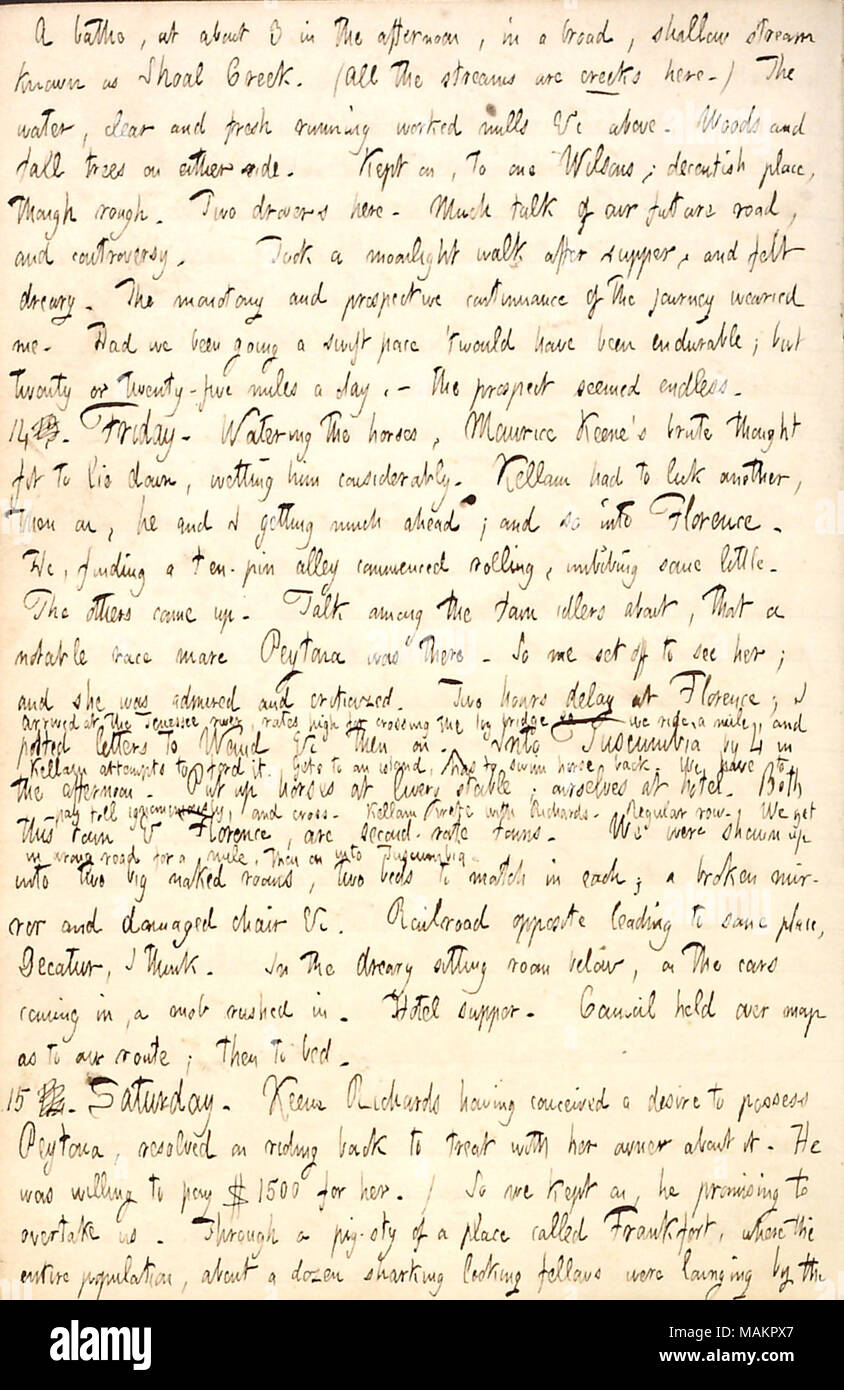 A bathe, at about 3 in the afternoon, in a broad, shallow stream
known as Shoal Creek. (All the streams are creeks here.) The
water, clear and fresh running worked mills &c above. Woods and
tall trees on either side. Kept on, to one Wilsons; decentish place,
though rough. Two drovers here. Much talk of our future road,
and controversy. Took a moonlight walk after supper, and felt
dreary. The monotony and prospective continuance of the journey wearied
me. Had we been going a swift pace 'twould have been endurable; but
twenty or twenty-five miles a day, — the prospect seemed endless.
14. Friday. Watering the horses, Maurice Keene's brute thought
fit to lie down, wetting him considerably. Kellam had to lick another,
then on, he and I getting much ahead; and so into Florence.
He, finding a ten-pin alley commenced rolling, imbibing some little.
The others come up. Talk among the town idlers about, that a
notable race mare Peytona was there. So we set off to see her;
and she was admired and criticized. Two hours delay at Florence; I
arrived at the Tenessee river, rates high for crossing the big bridge we ride a mile, and
posted letters to Waud &c then on. Into Tuscumbia by 4 in
Kellam attempts to ford it. Gets to an island, has to swim horse back. We have to
the afternoon. Put up horses at livery stable; ourselves at hotel. Both
pay toll ignominiously, and cross. Kellam irate with Richards. Regular row. We get
this town & Florence, are second-rate towns. We were shown up
in wrong road for a mile, then on into Tuscumbia.
into two big naked rooms, two beds to match in each; a broken mir-
ror and damaged chair &c. Railroad opposite leading to some place,
Decatur, I think. In the dreary sitting room below, on the cars
coming in, a mob rushed in. Hotel supper. Council held over map
as to our route; then to bed.
15. Saturday. Keene Richards having conceived a desire to possess
Peytona, resolved on riding back to treat with her owner about it. He
was willing to pay $1500 for her. / So we kept on, he promising to
overtake us. Through a pig-sty of a place called Frankfort, where the
entire population, about a dozen sharking looking fellows were lounging by the
alamy
Image ID: MAKPX7
www.alamy.com